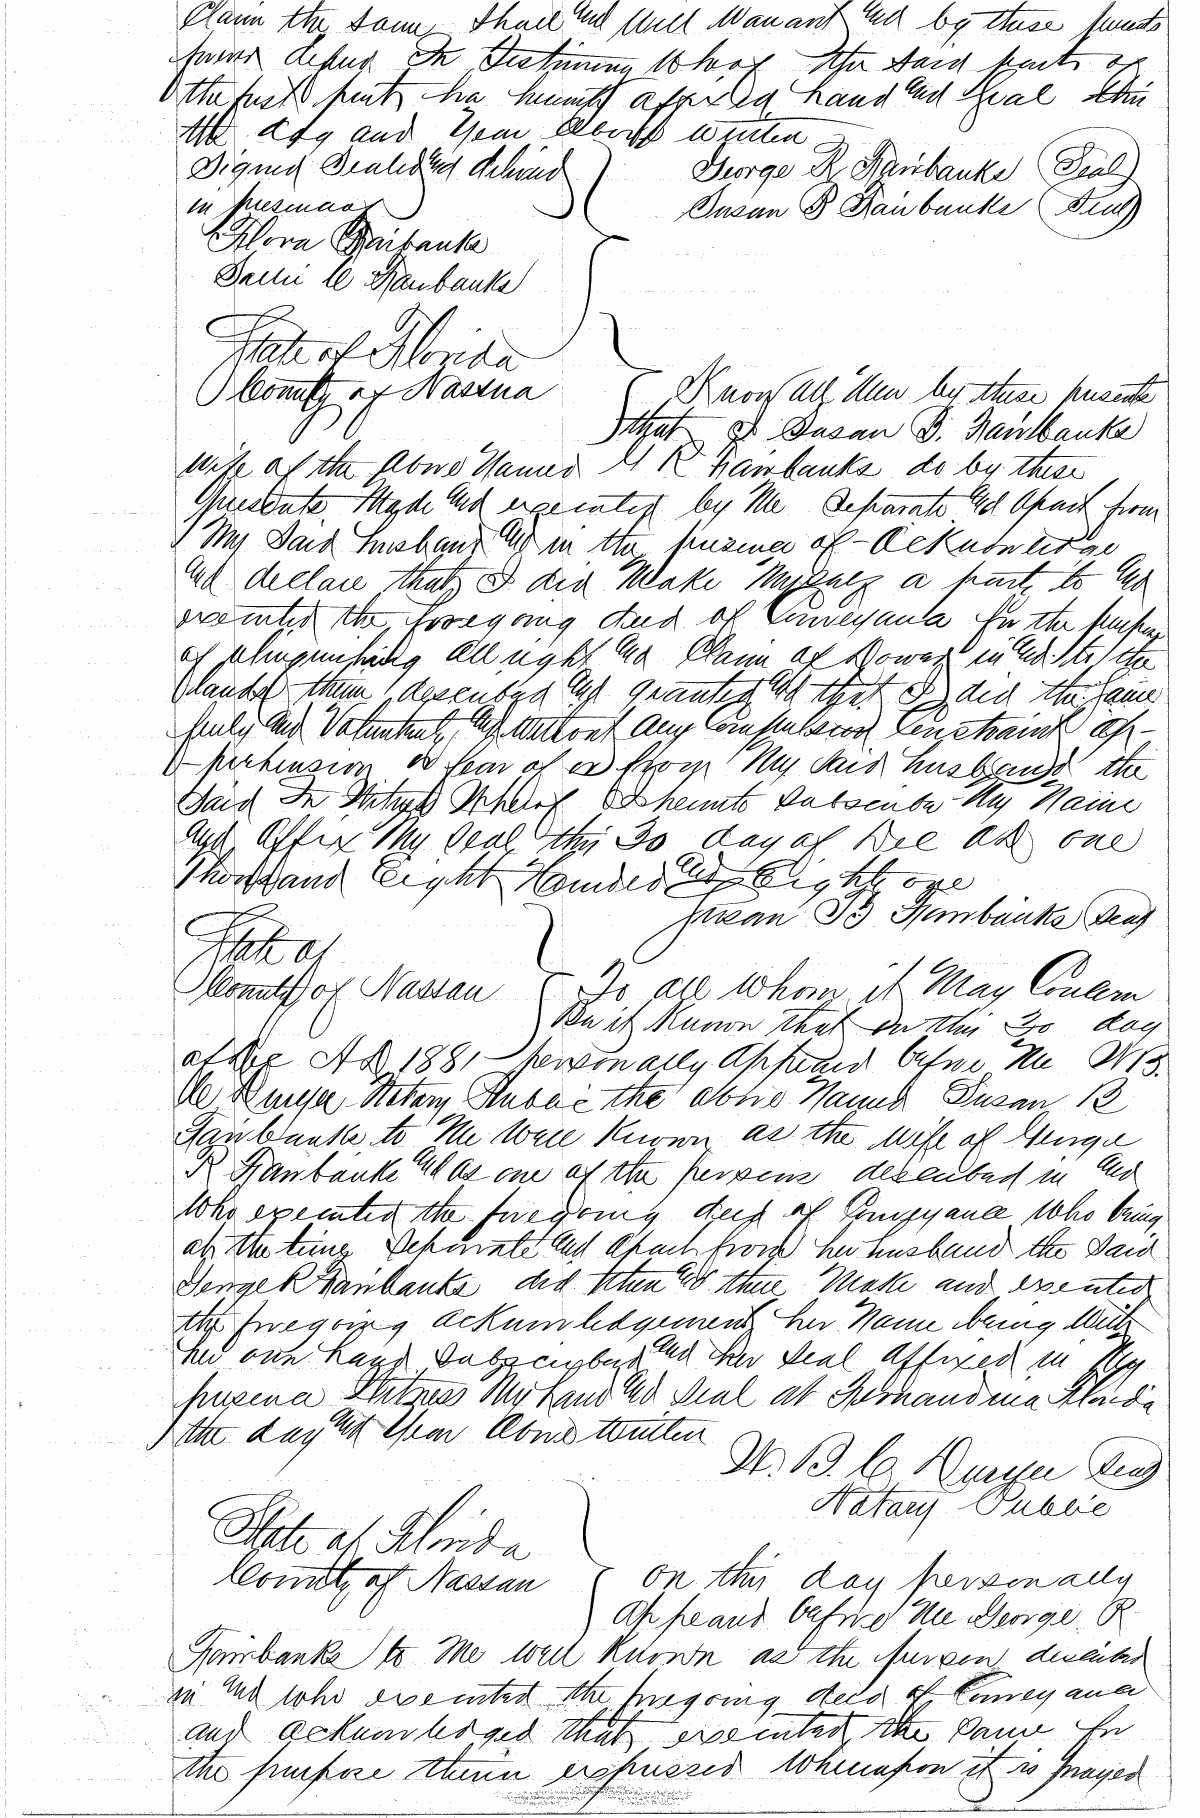 Claim the same, Shall and Will Warrant and by these presents
forever defend In Testimony Whereof the said party of
the first part has hereunto affixed hand and Seal this
the day and Year Above written
Signed Sealed and delivered
in presence of
George R Fairbanks (Seal)
Susan B Fairbanks (Seal)
Flora Fairbanks
Sallie C Fairbanks
State of Florida
County of Nassua
Know All Men by these presents
that I Susan B. Fairbanks
wife of the Above Named G R Fairbanks do by these
presents Made and executed by Me Separate and Apart from
My Said husband and in the presence of - Acknowledge
and declare that I did Make Myself a party to and
executed the foregoing deed of Conveyance for the purpose
of relinquishing All right and Claim of Dower in and to the
lands therein described and granted and that I did the same
freely and Voluntarily and without any Compulsion Constraint ap-
-prehension or fear of or from My said husband the
Said In Witness Whereof I hereunto Subscribe My Name
and Affix My Seal this 30 day of Dec AD one
Thousand Eight Hundred and Eighty one
Susan B Fairbanks (Seal)
State of
County of Nassau
To all whom it May Concern
Be it Known that on this 30 day
of Dec A D 1881 personally Appeared before Me W B.
C Duryee Notary Public the above Named Susan B
Fairbanks to Me Well Known as the wife of George
R Fairbanks and as one of the persons described in and
Who executed the foregoing deed of Conveyance who being
at the time Separate and Apart from her husband the Said
George R Fairbanks did then and there Make and executed
the foregoing acknowledgement her Name being With
her own hand Subscribed and her Seal Affixed in My
presence Witness My hand and Seal at Fernandina Florida
the day and Year Above Written
W. B. C Duryee (Seal)
Notary Public
State of Florida
County of Nassau
On this day personally
Appeard before Me George R
Fairbanks to Me Well Known as the person described
in and who executed the foregoing deed of Conveyance
and acknowledged that executed the Same for
the purpose therein expressed Whereupon it is prayed